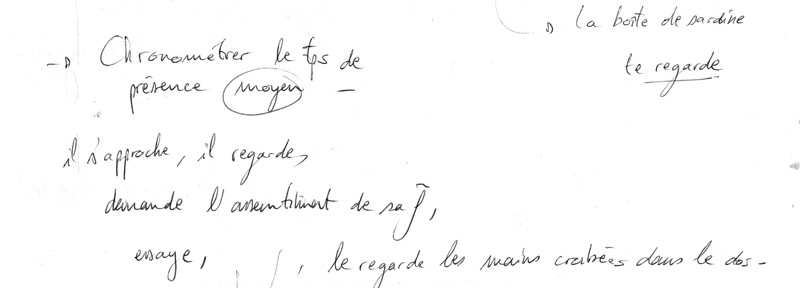 → Chronométrer le tps de
présence moyen –
→ la boîte de sardine
te regarde
il s'approche, il regarde,
demande l'assentiment de sa
essaye,
, le regarde les mains croisées dans le dos -